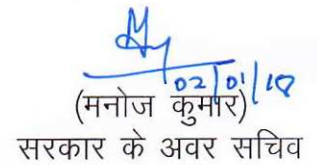 02/01/18
(मनोज कुमार)
सरकार के अवर सचिव